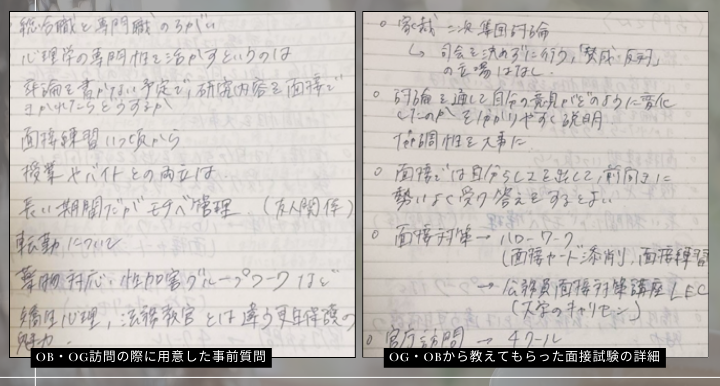 総合職と専門職のちがい
心理学の専門性を活かすというのは
卒論を書かない予定で、研究内容を面接で
きかれたらどうするか
面接練習いつ頃から
授業やバイトとの両立は
長い期間だがモチベ管理.(友人関係)
転勤について
薬物対応・性加害グループワークなど
矯正心理,法務教官とは違う更生保護の
魅力.
OB・OG訪問の際に用意した事前質問
○ 家裁 二次集団討論
↳ 司会を決めずに行う,「賛成・反対」
の立場はなし.
○ 討論を通して自分の意見がどのように変化
したのかを分かりやすく説明
協調性を大事に
○ 面接では自分らしさを出して,前向きに
勢いよく受け答えをするとよい
○ 面接対策→ハローワーク
(面接カード添削,面接練習
→公務員面接対策講座LEC
(大学のキャリセン)
○ 官庁訪問 → 4クール
OG・OBから教えてもらった面接試験の詳細